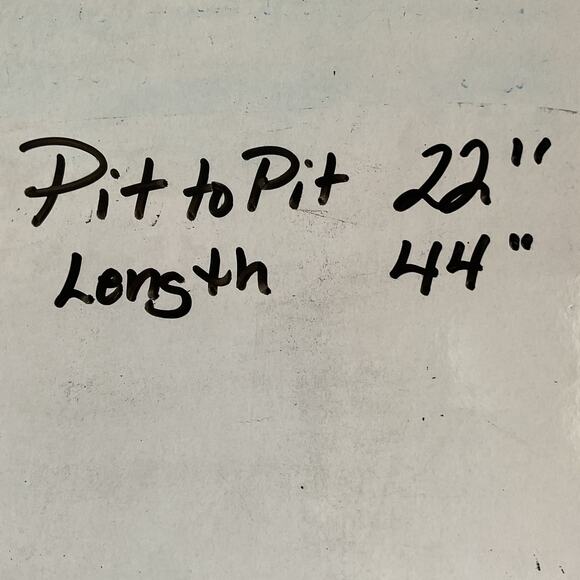 Pit to Pit 22"
Length 44"